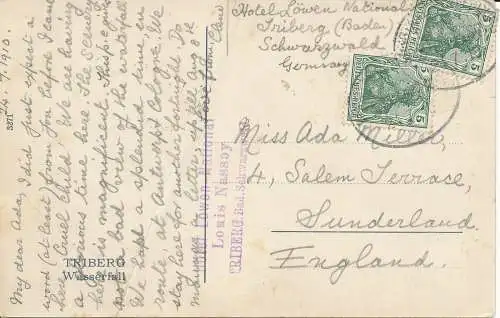 24.7.1910.
My dear Ada, I did just expect a
word (at least) from you before I came
here. Cruel Child! We are having
a glorious time here; the scenery
here is magnificent. This p.c. gives
not a bad view of the waterfall.
We had a splendid time, en
route, at Antwerp & Cologne. We
stay here for another fortnight. Do
manage a letter, of
Love from
Hotel Löwen National
Triberg (Baden)
Schwarzwald
Germany
5
5
Miss Ada
4, Salem Terrace,
Sunderland,
England.
Hotel Löwen National
Louis Nassoy
TRIBERG, Bad. Schwarzwald
3371
TRIBERG
Wasserfall